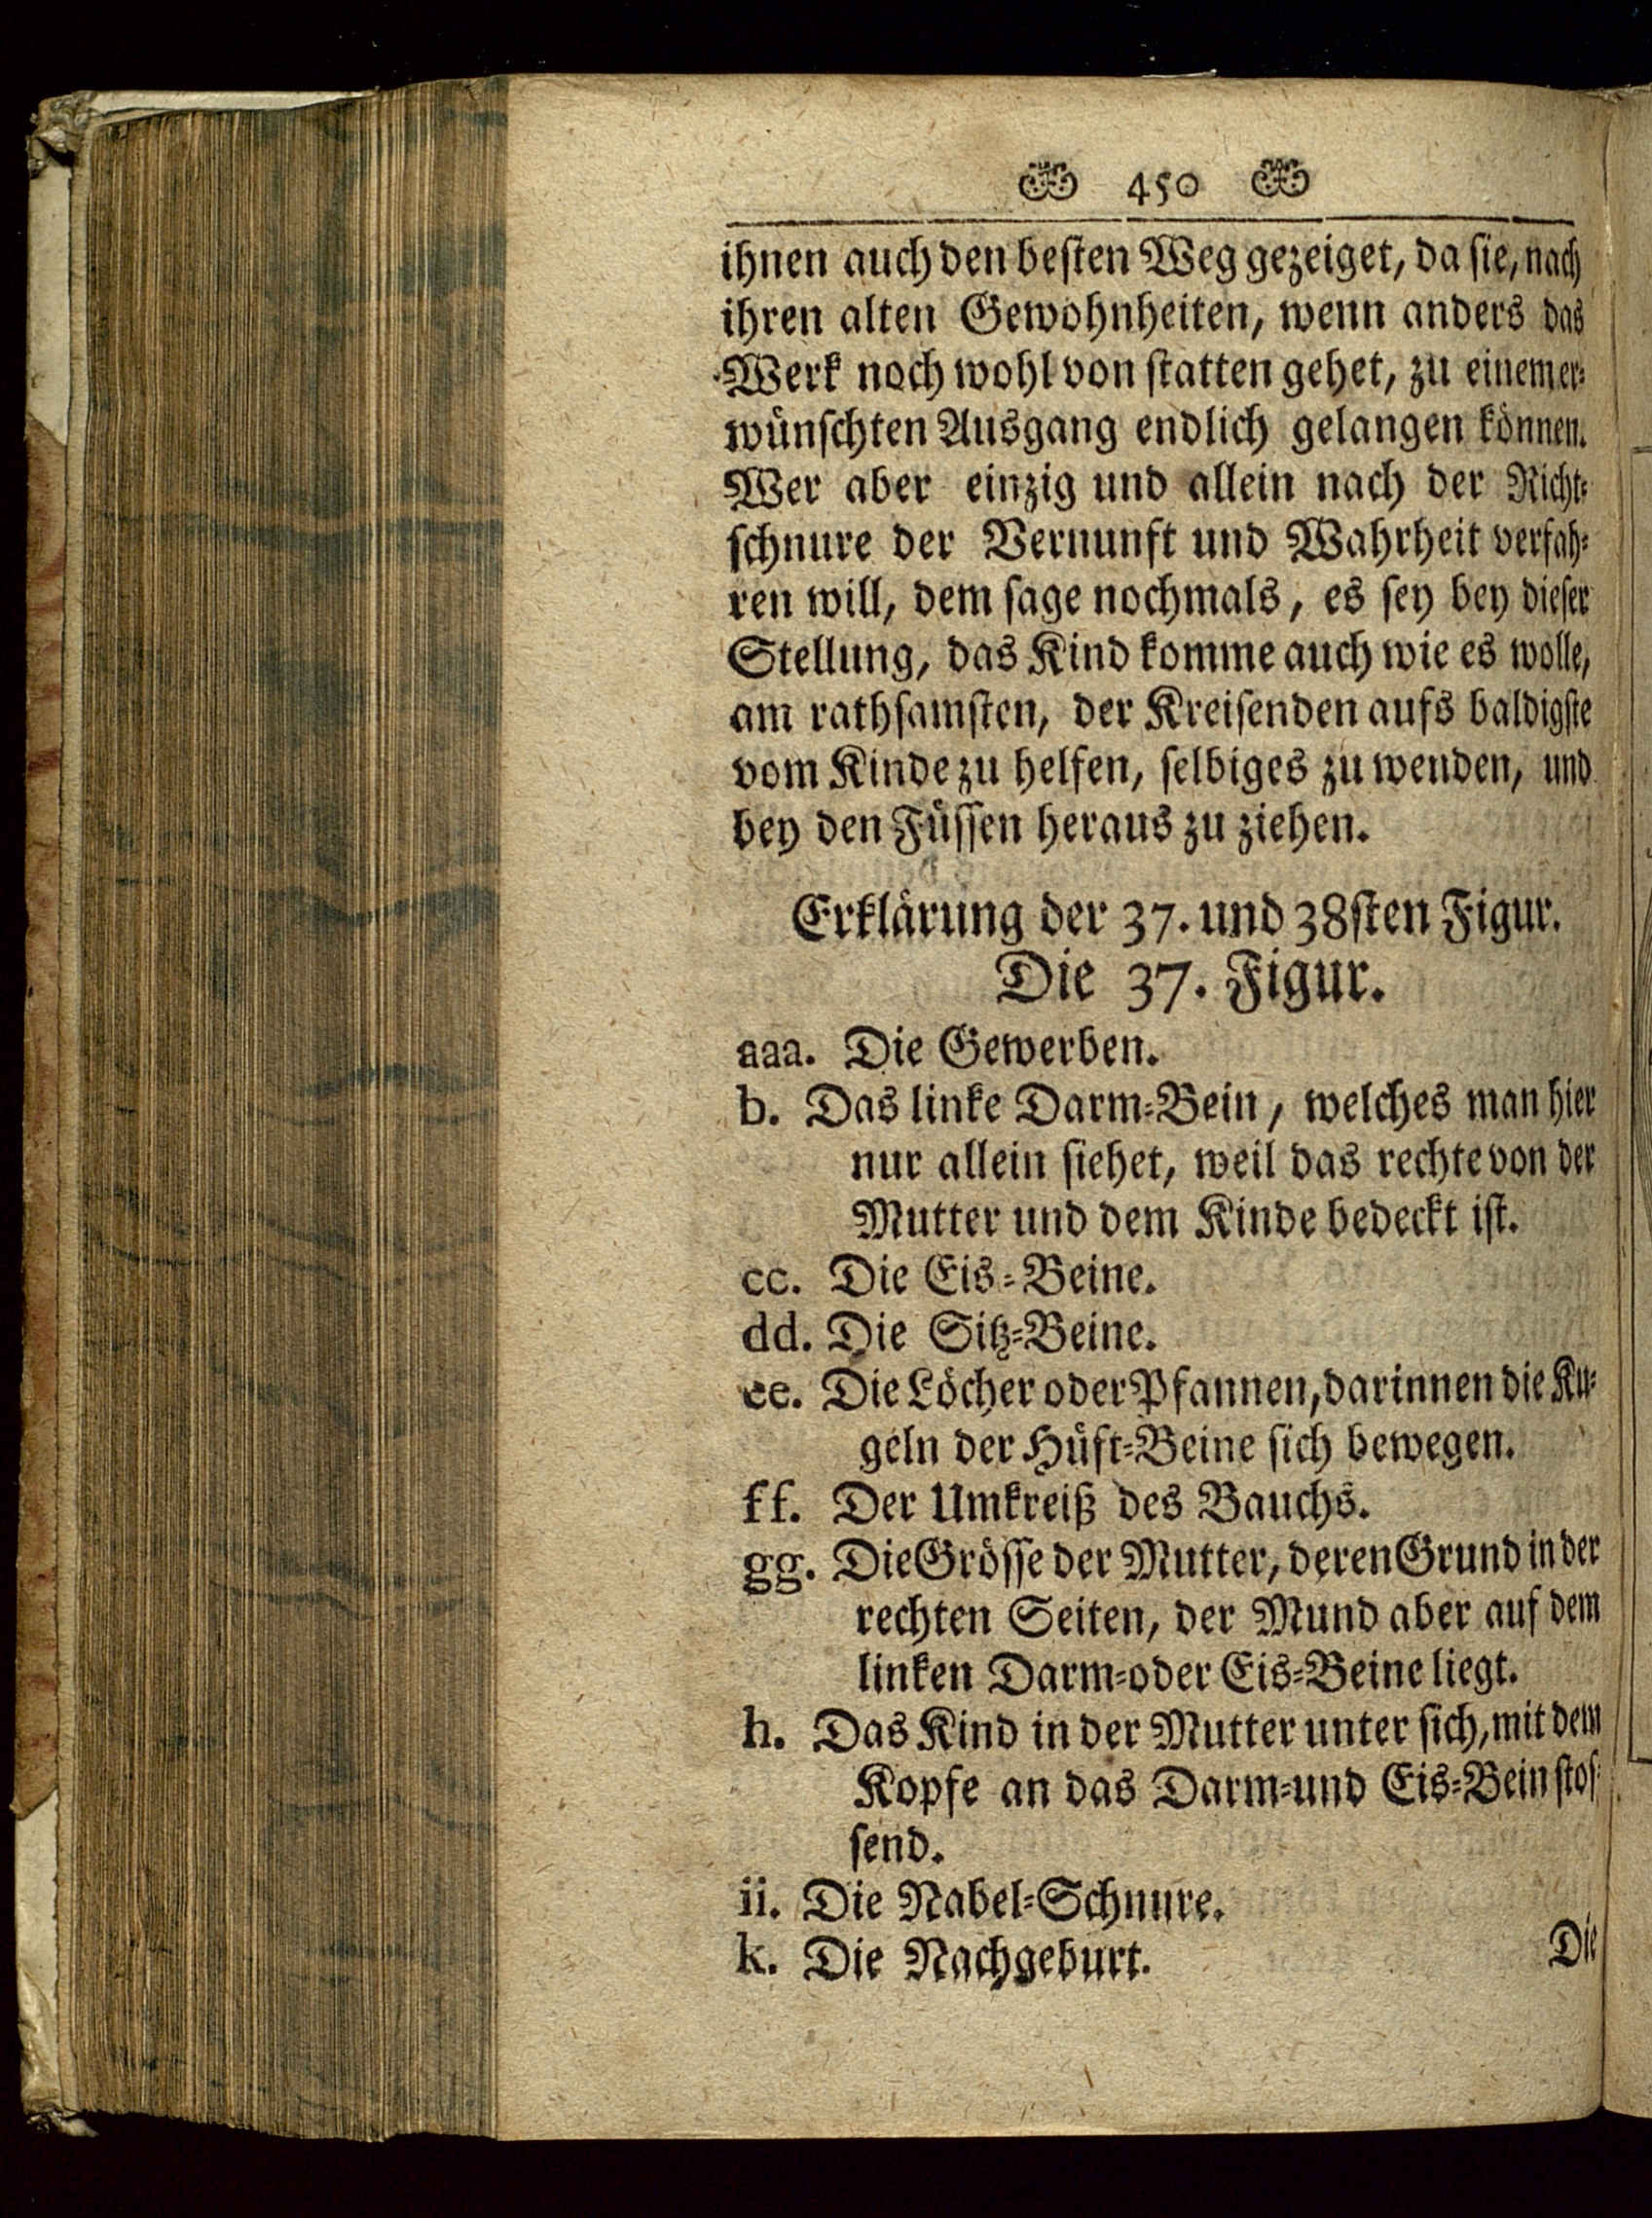 450
ihnen auch den besten Weg gezeiget, da sie, nach
ihren alten Gewohnheiten, wenn anders das
Werk noch wohl von statten gehet, zu einem er-
wünschten Ausgang endlich gelangen können.
Wer aber einzig und allein nach der Richt-
schnure der Vernunft und Wahrheit verfah-
ren will, dem sage nochmals, es sey bey dieser
Stellung, das Kind komme auch wie es wolle,
am rathsamsten, der Kreisenden aufs baldigste
vom Kinde zu helfen, selbiges zu wenden, und
bey den Füssen heraus zu ziehen.
Erklärung der 37. und 38sten Figur.
Die 37. Figur.
aaa. Die Gewerben.
b. Das linke Darm-Bein, welches man hier
nur allein siehet, weil das rechte von der
Mutter und dem Kinde bedeckt ist.
cc. Die Eis-Beine.
dd. Die Sitz-Beine.
ee. Die Löcher oder Pfannen, darinnen die Ku-
geln der Hüft-Beine sich bewegen.
ff. Der Umkreiß des Bauchs.
gg. Die Grösse der Mutter, deren Grund in der
rechten Seiten, der Mund aber auf dem
linken Darm-oder Eis-Beine liegt.
h. Das Kind in der Mutter unter sich, mit dem
Kopfe an das Darm-und Eis-Bein stos-
send.
ii. Die Nabel-Schnure.
k. Die Nachgeburt.
Die